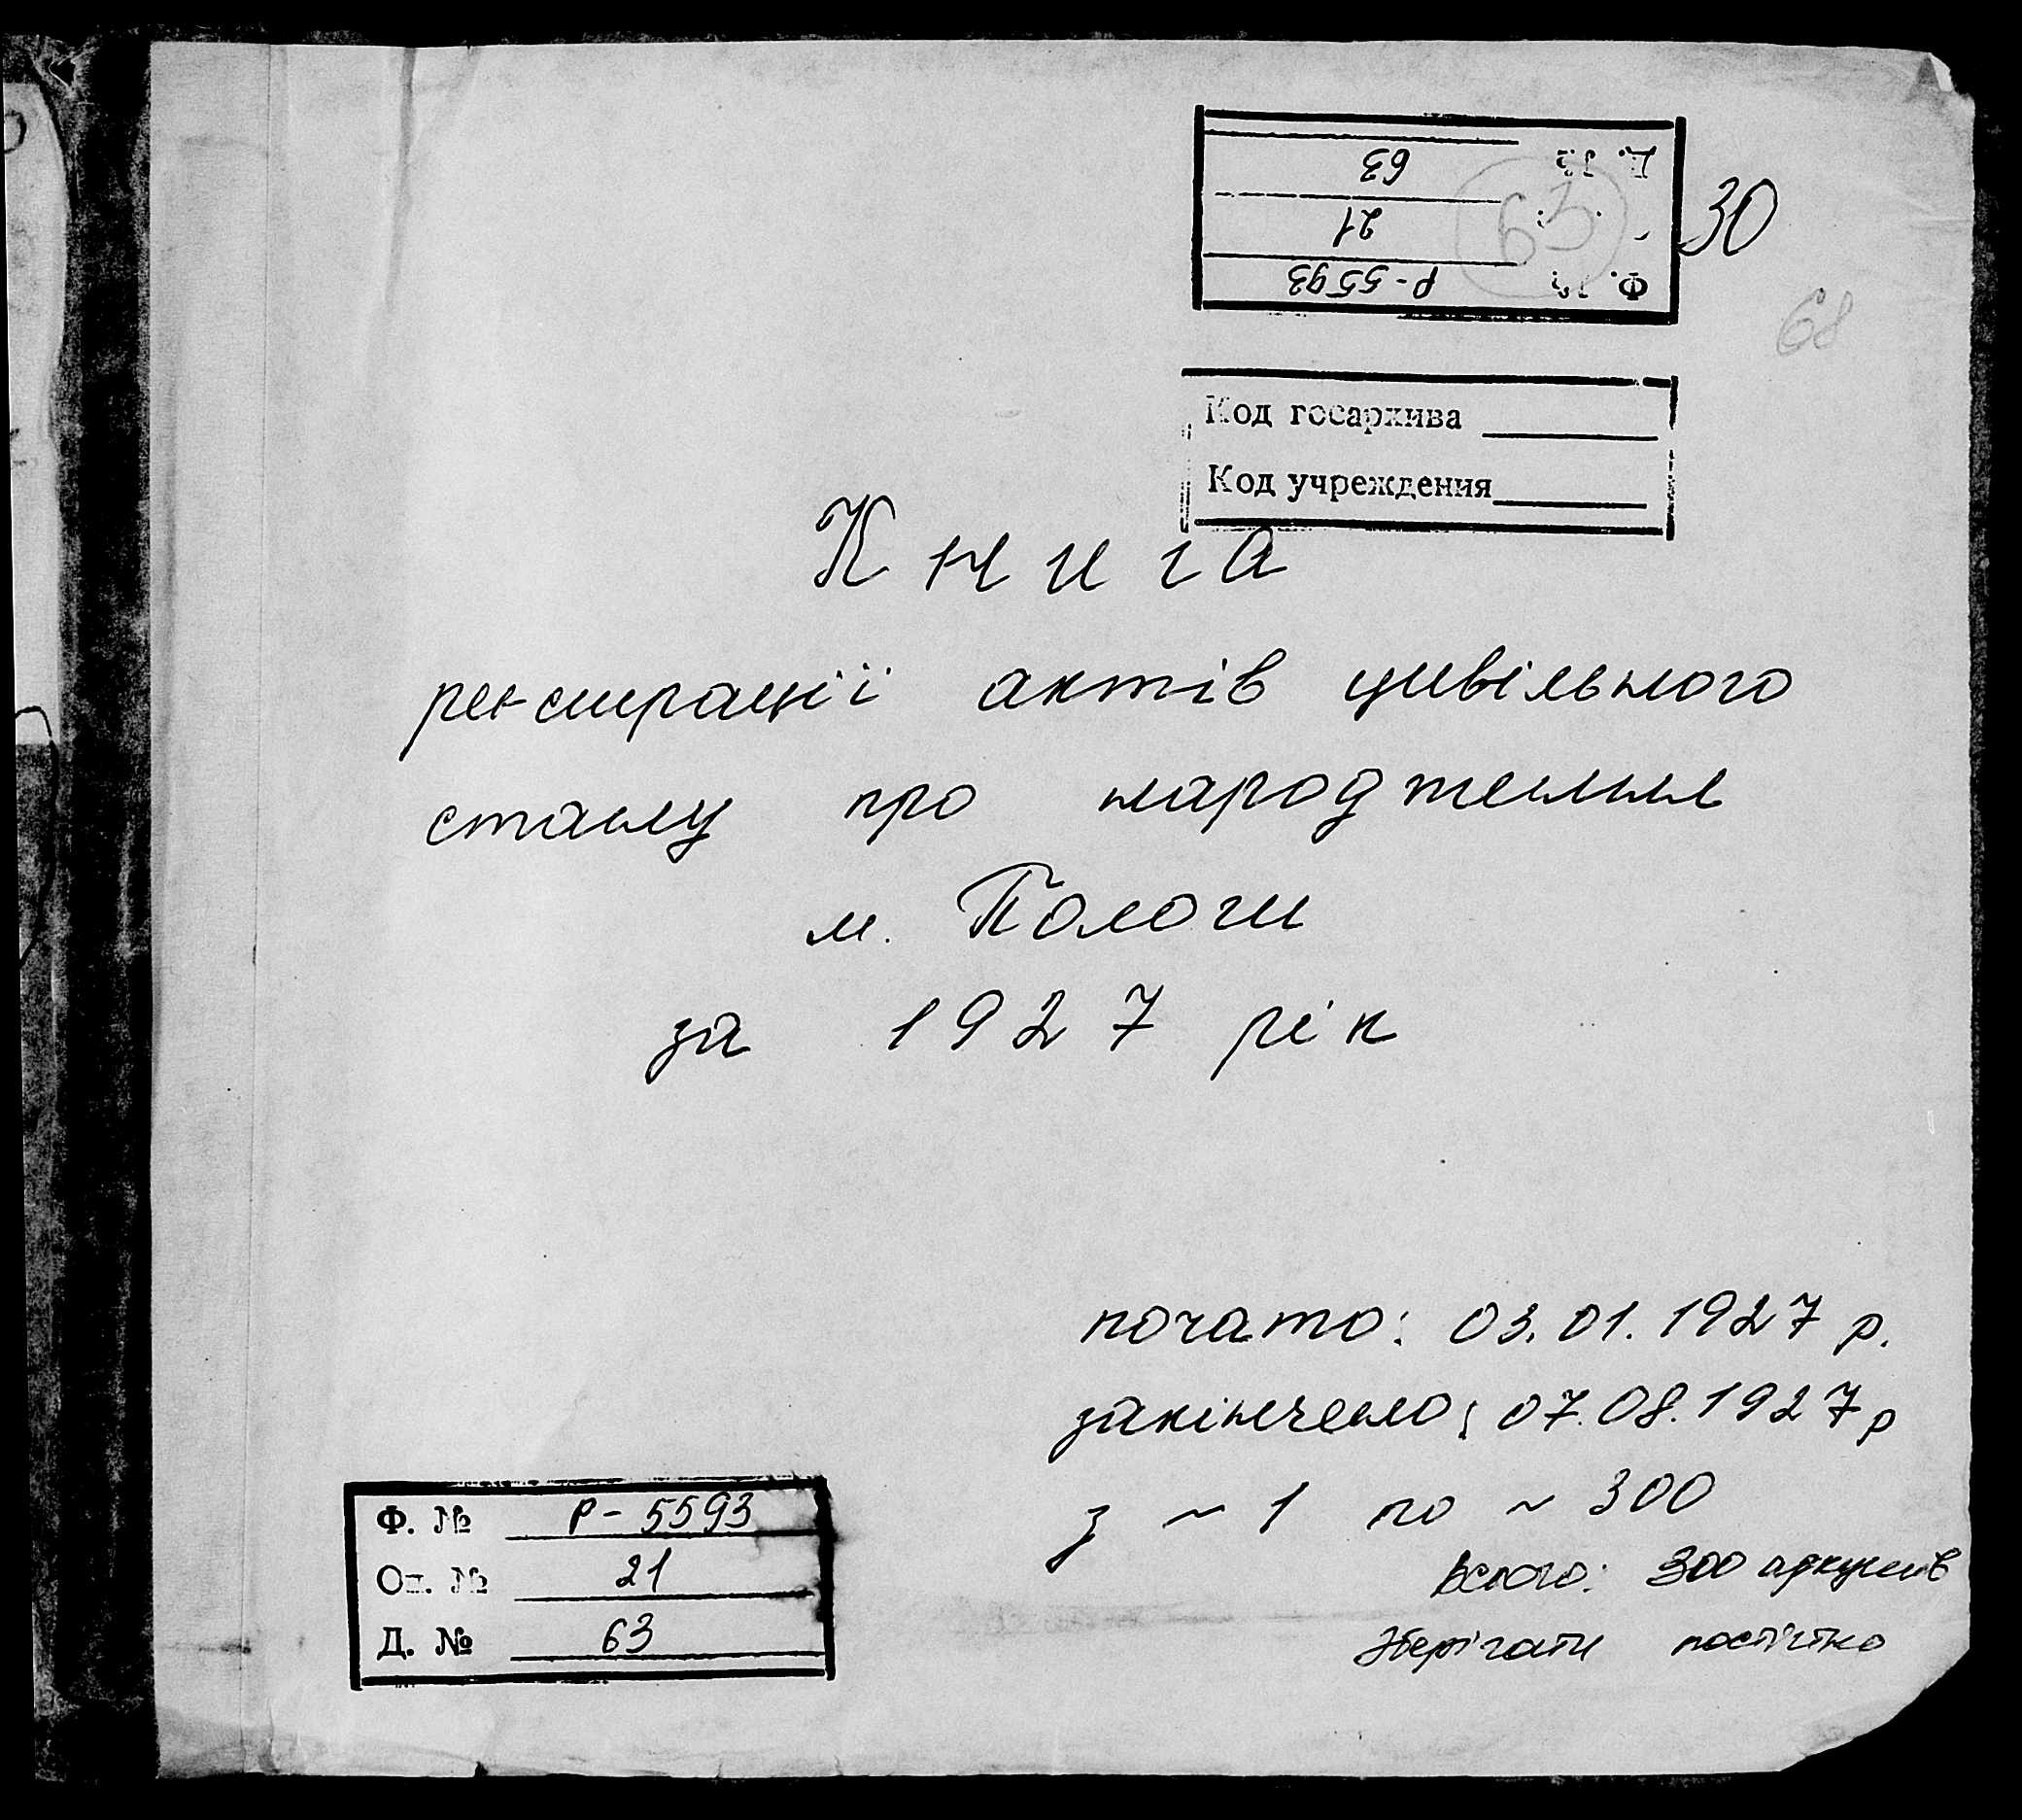 Д. № 63
21
Ф. № Р-5593
63
30
68
Код госархива
Код учреждения
Книга
реєстрації актів цивільного
стану про народження
м. Пологи
за 1927 рік
почато: 03.01.1927 р.
закінчено: 07.08.1927 р
з ~ 1 по ~ 300
Всього: 300 аркушів
Зберігати постійно
Ф. № Р-5593
Оп. № 21
Д. № 63